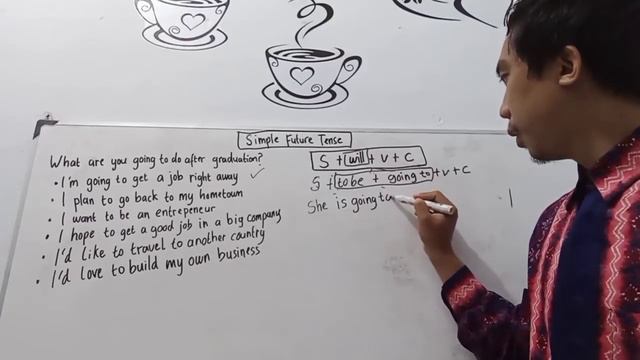 Simple Future Tense
What are you going to do after graduation?
• I'm going to get a job right away ✓
• I plan to go back to my hometown
• I want to be an entrepeneur
• I hope to get a good job in a big company
• I'd like to travel to another country
• I'd love to build my own business
S + will + V + C
S + to be + going to + V + C
She is going to